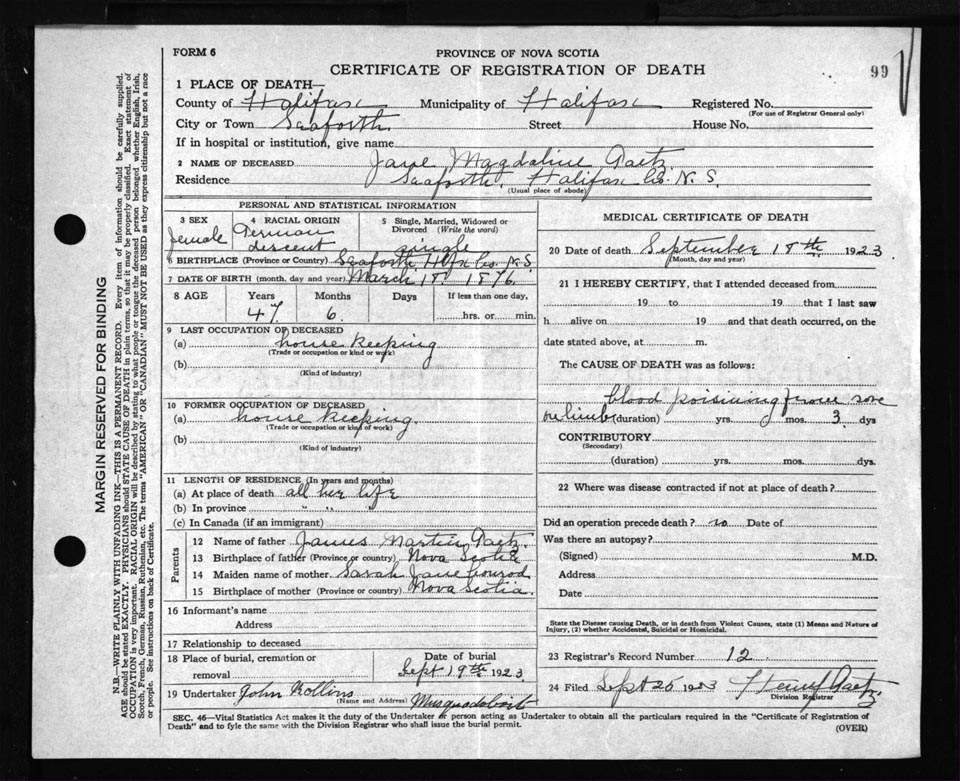 FORM 6
PROVINCE OF NOVA SCOTIA
CERTIFICATE OF REGISTRATION OF DEATH
99
1 PLACE OF DEATH—
County of Halifax Municipality of Halifax Registered No.
(For use of Registrar General only)
City or Town Seaforth Street House No.
If in hospital or institution, give name
2 NAME OF DECEASED Jane Magdaline Gaetz
Residence Seaforth, Halifax Co. N. S.
(Usual place of abode)
PERSONAL AND STATISTICAL INFORMATION
3 SEX female
4 RACIAL ORIGIN German descent
5 Single, Married, Widowed or Divorced (Write the word) single
6 BIRTHPLACE (Province or Country) Seaforth Hfx Co. N.S.
7 DATE OF BIRTH (month, day and year) March 18 1876.
8 AGE Years Months Days If less than one day,
47 6. hrs. or min.
9 LAST OCCUPATION OF DECEASED
(a) house keeping
(Trade or occupation or kind or work)
(b)
(Kind of industry)
10 FORMER OCCUPATION OF DECEASED
(a) house keeping.
(Trade or occupation or kind of work)
(b)
(Kind of industry)
11 LENGTH OF RESIDENCE (In years and months)
(a) At place of death all her life
(b) In province " " "
(c) In Canada (if an immigrant)
Parents
12 Name of father James Martin Gaetz
13 Birthplace of father (Province or country) Nova Scotia
14 Maiden name of mother Sarah Jane Conrod
15 Birthplace of mother (Province or country) Nova Scotia.
16 Informant's name
Address
17 Relationship to deceased
18 Place of burial, cremation or removal
Date of burial
Sept 19th 1923
19 Undertaker John Rollins Musquodoboit
(Name and Address)
MEDICAL CERTIFICATE OF DEATH
20 Date of death September 18th. 1923
(Month, day and year)
21 I HEREBY CERTIFY, that I attended deceased from
19 to 19 that I last saw
h alive on 19 and that death occurred, on the
date stated above, at m.
The CAUSE OF DEATH was as follows:
blood poisining from sore
on limb (duration) yrs. mos. 3. dys
CONTRIBUTORY
(Secondary)
(duration) yrs. mos. dys.
22 Where was disease contracted if not at place of death?
Did an operation precede death? no Date of
Was there an autopsy?
(Signed) M.D.
Address
Date
State the Disease causing Death, or in death from Violent Causes, state (1) Means and Nature of
Injury, (2) whether Accidental, Suicidal or Homicidal.
23 Registrar's Record Number 12
24 Filed Sept 25 1923 Henry Gaetz
Division Registrar
SEC. 46—Vital Statistics Act makes it the duty of the Undertaker or person acting as Undertaker to obtain all the particulars required in the "Certificate of Registration of
Death" and to fyle the same with the Division Registrar who shall issue the burial permit.
(OVER)
MARGIN RESERVED FOR BINDING
N.B.—WRITE PLAINLY WITH UNFADING INK—THIS IS A PERMANENT RECORD. Every item of information should be carefully supplied.
AGE should be stated EXACTLY. PHYSICIANS should STATE CAUSE OF DEATH in plain terms, so that it may be properly classified. Exact statement of
OCCUPATION is very important. RACIAL ORIGIN will be described by stating to what people or tongue the deceased person belonged whether English, Irish,
Scotch, French, German, Russian, Ruthenian, etc. The terms "AMERICAN" OR "CANADIAN" MUST NOT BE USED as they express citizenship but not a race
or people. See instructions on back of Certificate.